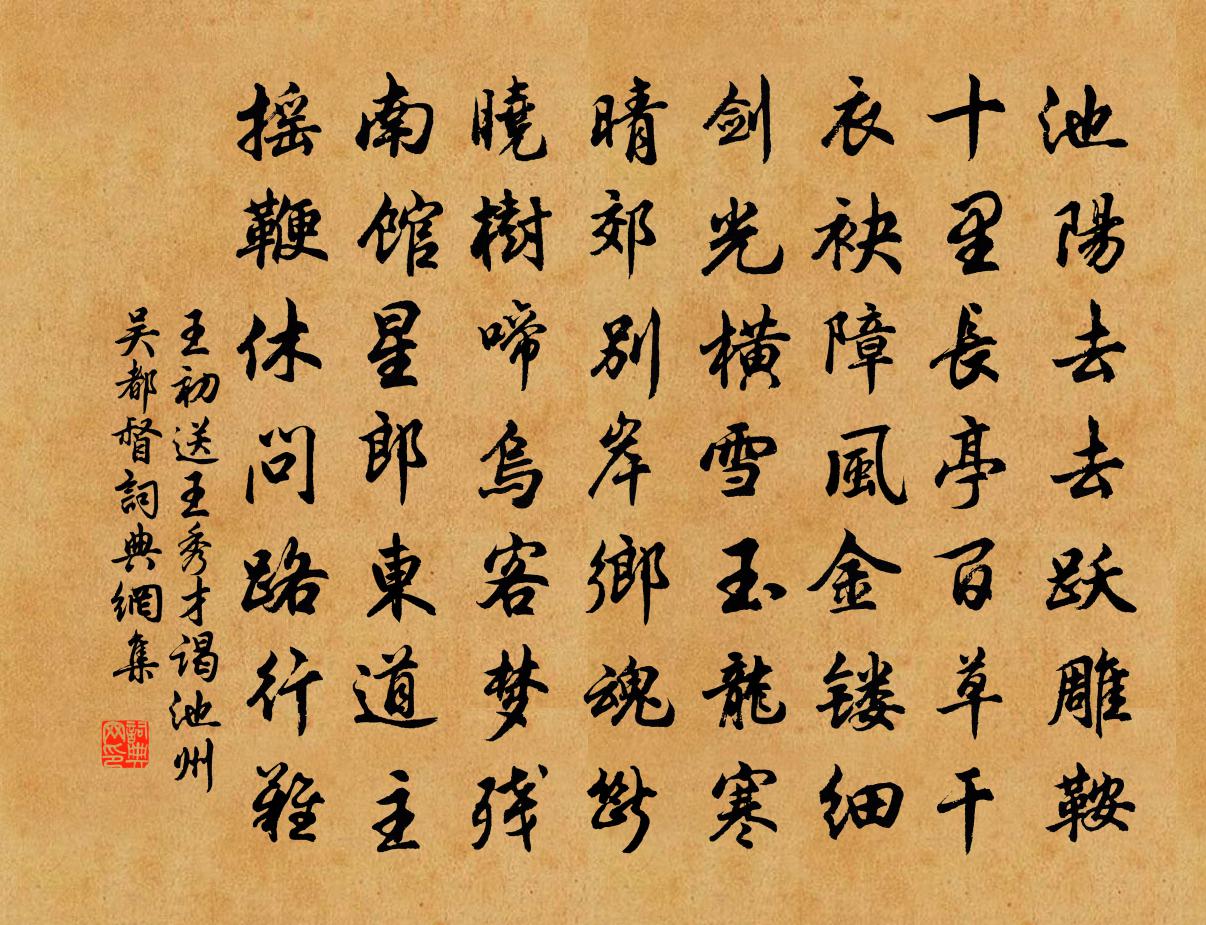 池陽去去跃雕鞍
十里長亭百草干
衣袂障風金镂细
劍光橫雪玉龍寒
晴郊别岸鄉魂斷
曉樹啼烏客梦残
南館星郎東道主
摇鞭休問路行難
王初送王秀才謁池州
吴都督詞典網集
詞典
网印